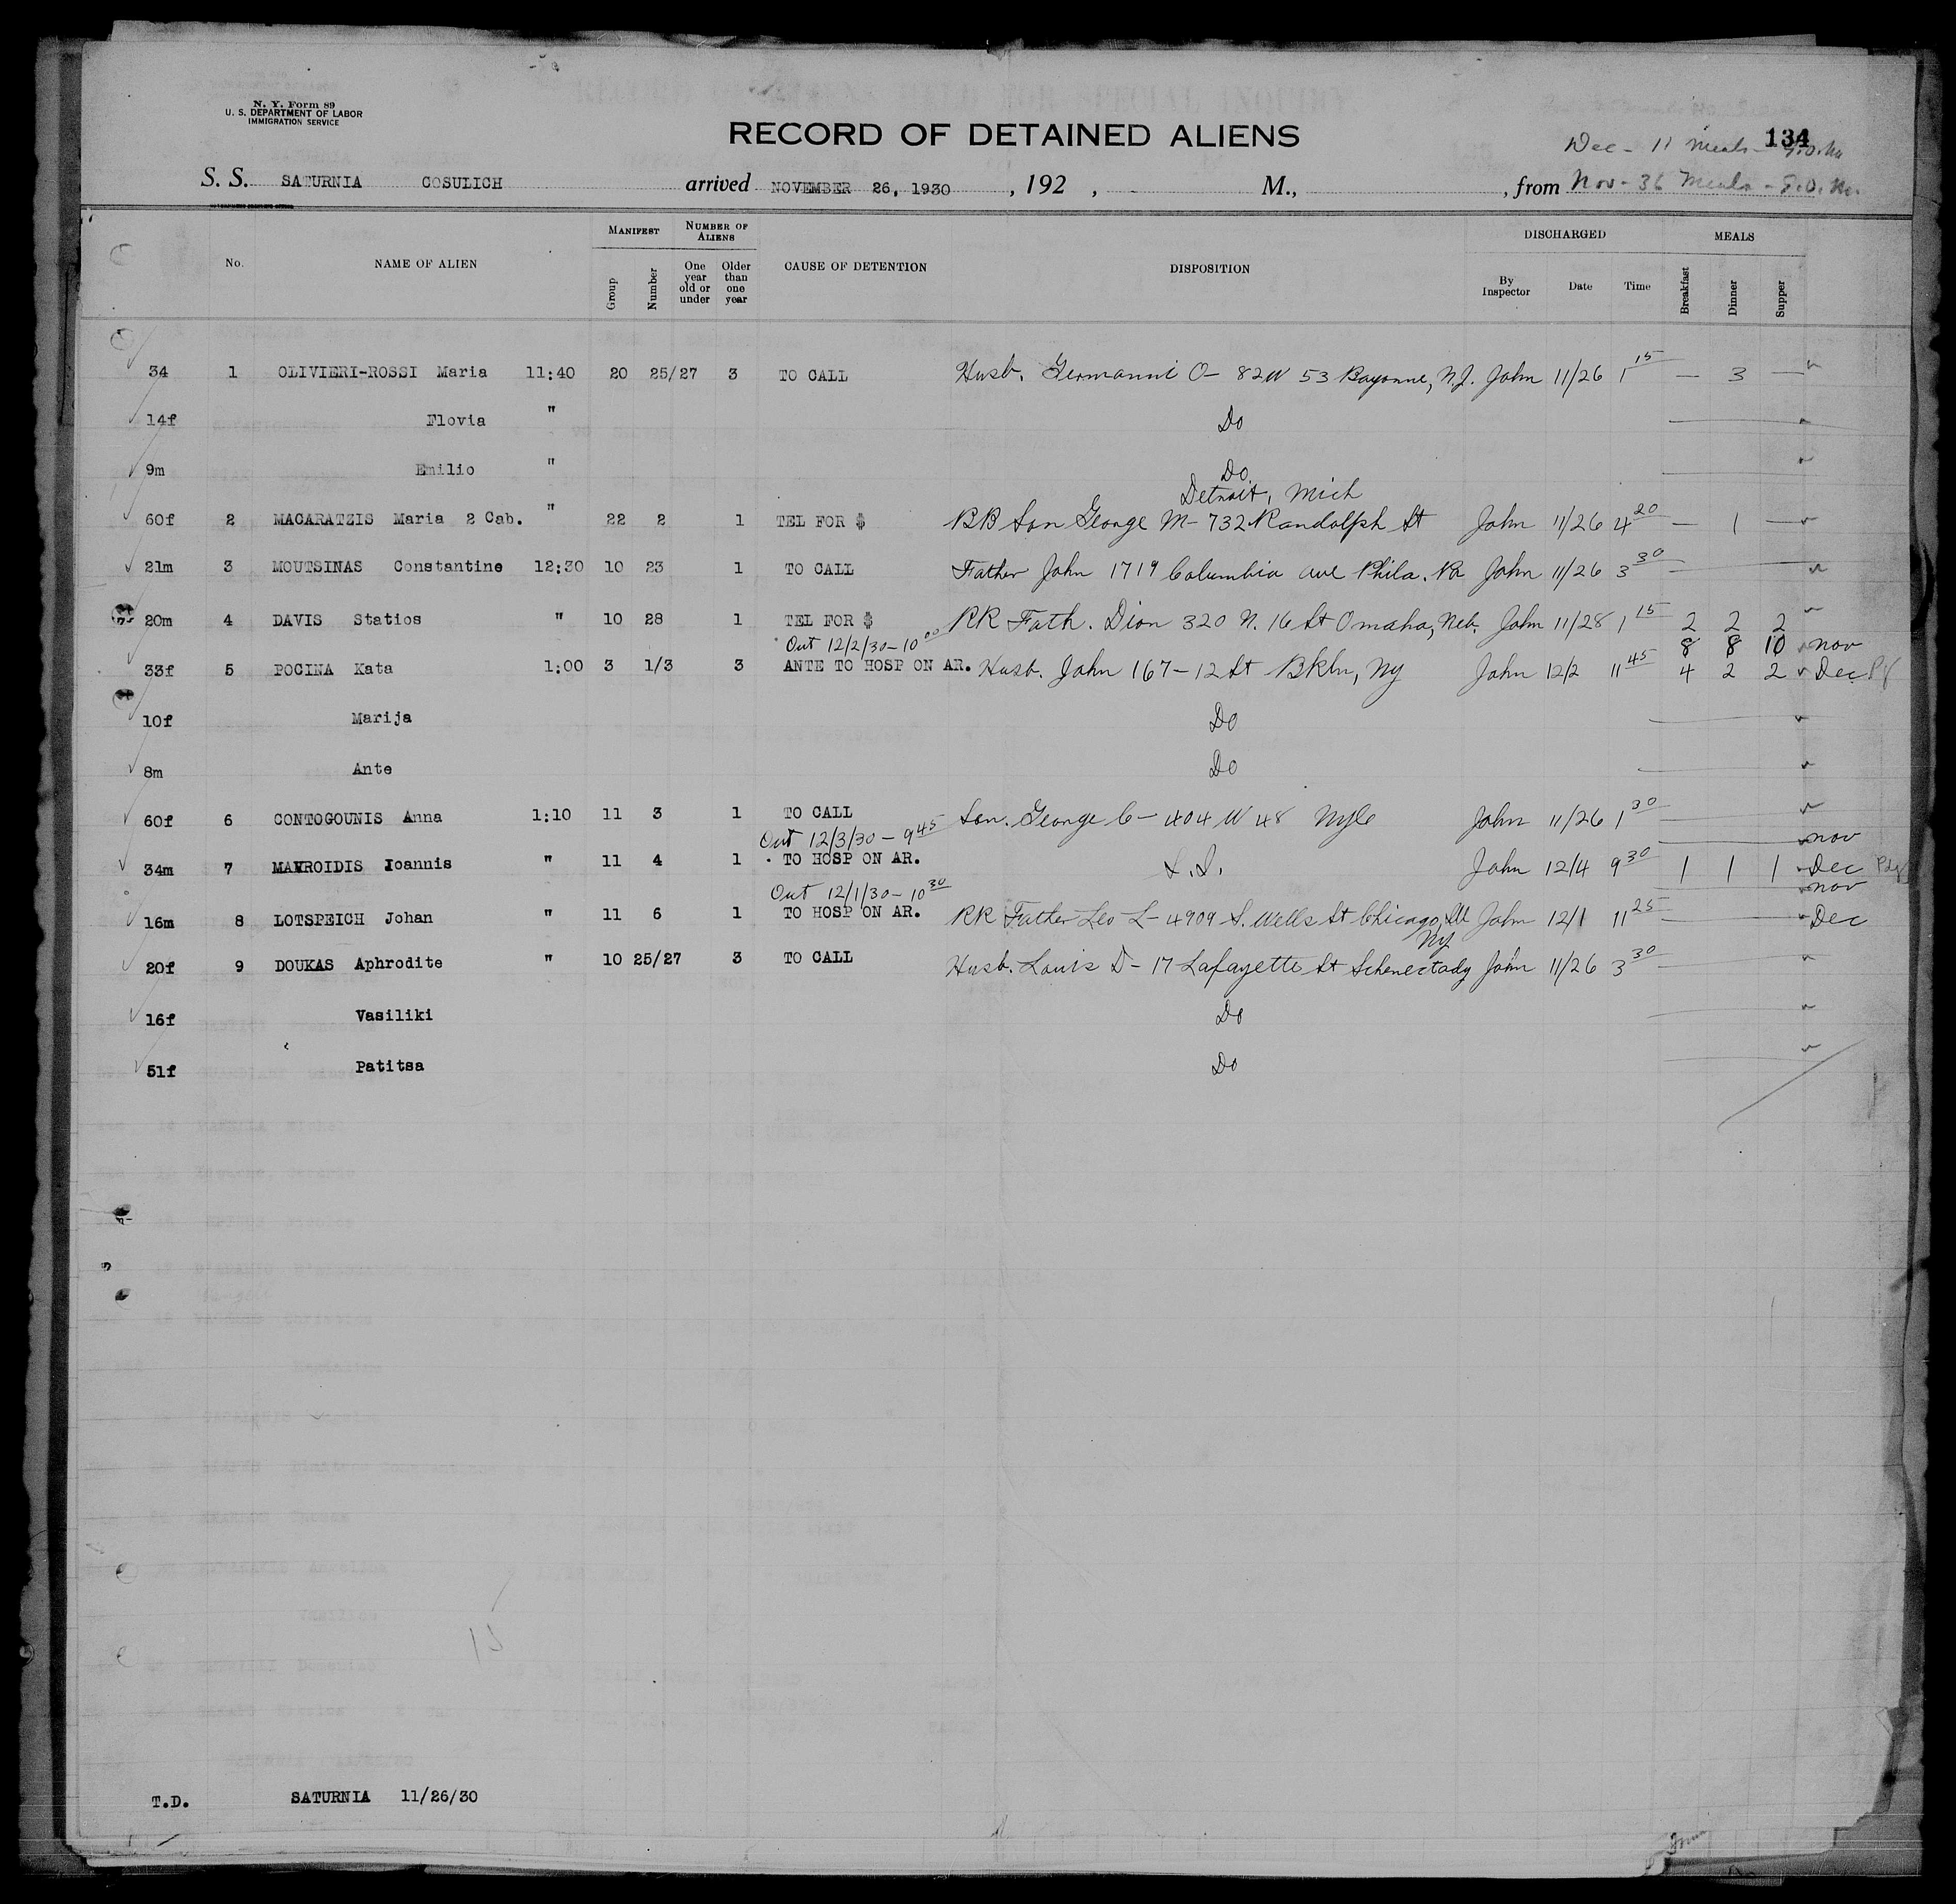 N. Y. Form 89
U. S. DEPARTMENT OF LABOR
IMMIGRATION SERVICE
RECORD OF DETAINED ALIENS
134
Dec - 11 Meals -
S. S. SATURNIA COSULICH arrived NOVEMBER 26, 1930 , 192 , M., , from Nov - 36 Meals -
No. NAME OF ALIEN MANIFEST Group Number NUMBER OF ALIENS One year old or under Older than one year CAUSE OF DETENTION DISPOSITION DISCHARGED By Inspector Date Time MEALS Breakfast Dinner Supper
34 1 OLIVIERI-ROSSI Maria 11:40 20 25/27 3 TO CALL Husb. Germanni O- 82 W 53 Bayonne, N.J. John 11/26 1 15 — 3 —
14f Flovia " Do
9m Emilio " Do
Detroit, Mich
60f 2 MACARATZIS Maria 2 Cab. " 22 2 1 TEL FOR $ RR Son George M- 732 Randolph St John 11/26 4 20 — 1 —
21m 3 MOUTSINAS Constantine 12:30 10 23 1 TO CALL Father John 1719 Columbia Ave Phila. Pa John 11/26 3 30 —
20m 4 DAVIS Statios " 10 28 1 TEL FOR $ RR Fath. Dion 320 N. 16 St Omaha, Neb. John 11/28 1 15 2 2 2
Out 12/2/30 - 10 00 8 8 10 Nov
33f 5 POCINA Kata 1:00 3 1/3 3 ANTE TO HOSP ON AR. Husb. John 167-12 St Bkln, Ny John 12/2 11 45 4 2 2 Dec
10f Marija Do
8m Ante Do
60f 6 CONTOGOUNIS Anna 1:10 11 3 1 TO CALL Son. George C- 404 W 48 Nyc John 11/26 1 30
Out 12/3/30 - 9 45 Nov
34m 7 MAVROIDIS Ioannis " 11 4 1 TO HOSP ON AR. S.I. John 12/4 9 30 1 1 1 Dec
Out 12/1/30 - 10 30 Nov
16m 8 LOTSPEICH Johan " 11 6 1 TO HOSP ON AR. RR Father Leo L- 4909 S. Wells St Chicago, Ill John 12/1 11 25 Dec
Ny
20f 9 DOUKAS Aphrodite " 10 25/27 3 TO CALL Husb. Louis D- 17 Lafayette St Schenectady John 11/26 3 30
16f Vasiliki Do
51f Patitsa Do
15
T.D. SATURNIA 11/26/30